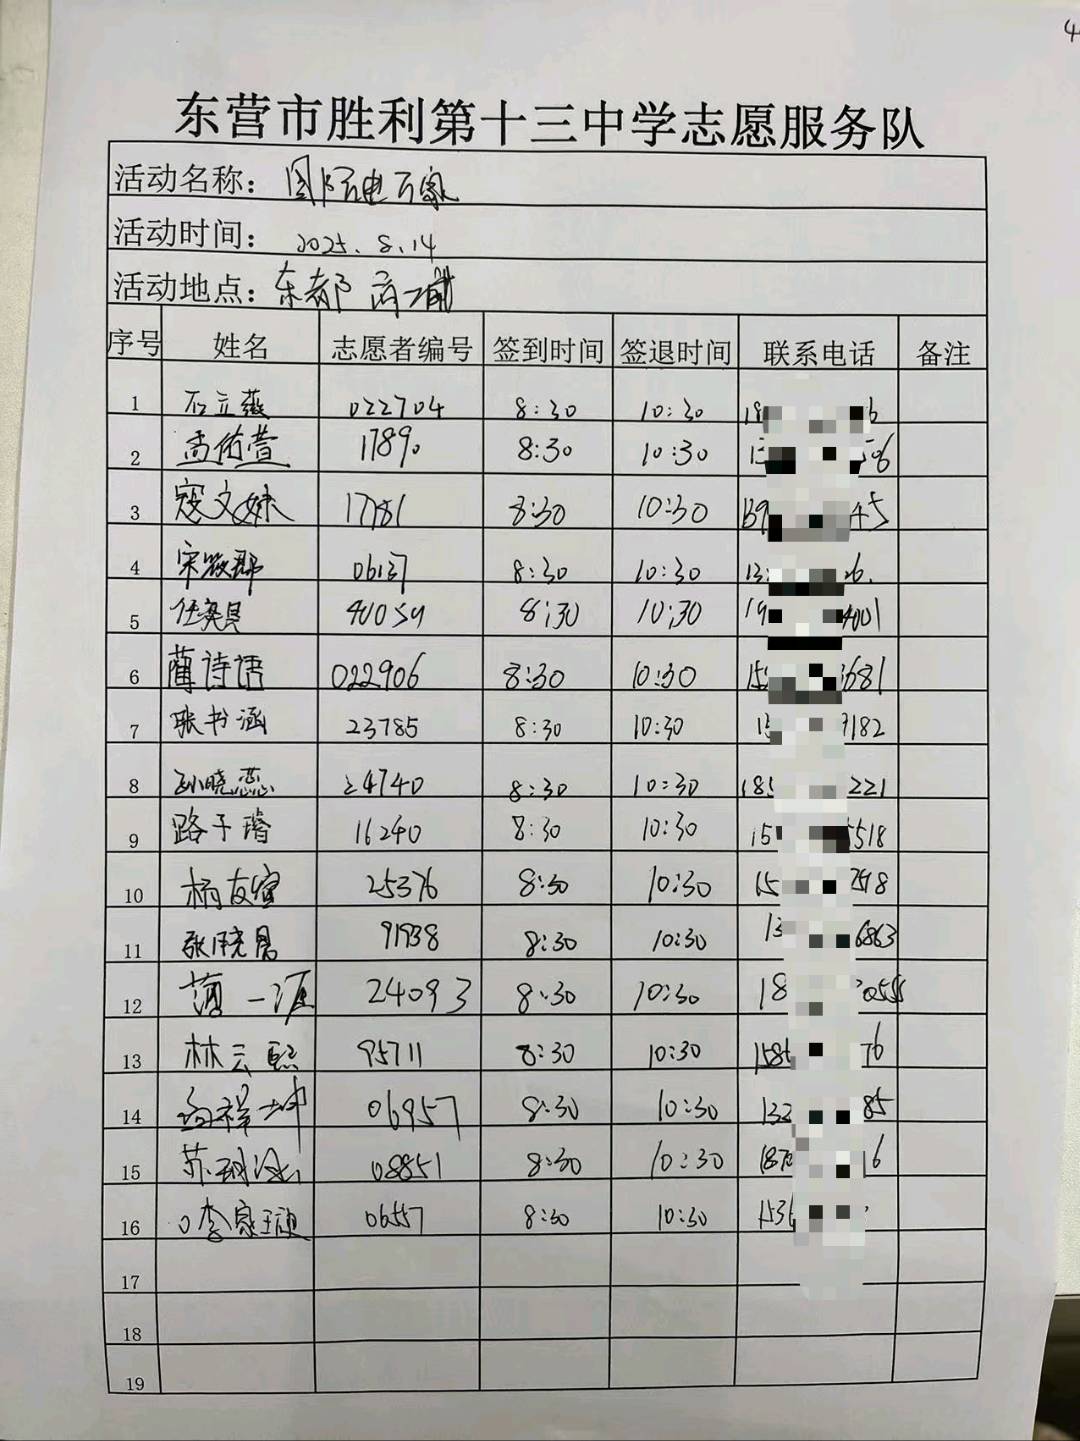 4
东营市胜利第十三中学志愿服务队
活动名称：
活动时间： 2025.8.14
活动地点：东都
序号 姓名 志愿者编号 签到时间 签退时间 联系电话 备注
1 石立燕 022704 8:30 10:30 18 6
2 孟佑萱 17890 8:30 10:30 13 506
3 寇文姝 17181 8:30 10:30 139 45
4 宋筱郡 8:30 10:30 13 26.
5 任奕 8:30 10:30 19 4001
6 蔺诗语 022906 8:30 10:30 15 3681
7 耿书涵 23785 8:30 10:30 15 9182
8 孙晓蕊 24740 8:30 10:30 185 221
9 路子璿 16240 8:30 10:30 15 5518
10 杨友萱 25376 8:30 10:30 15
11 张 91938 8:30 10:30 13 6863
12 一涯 24093 8:30 10:30 18 0555
13 林云熙 95711 8:30 10:30 158 76
14 祥坤 06957 8:30 10:30 132 85
15 苏 08851 8:30 10:30 187 16
16 李 06557 8:30 10:30 153
17
18
19